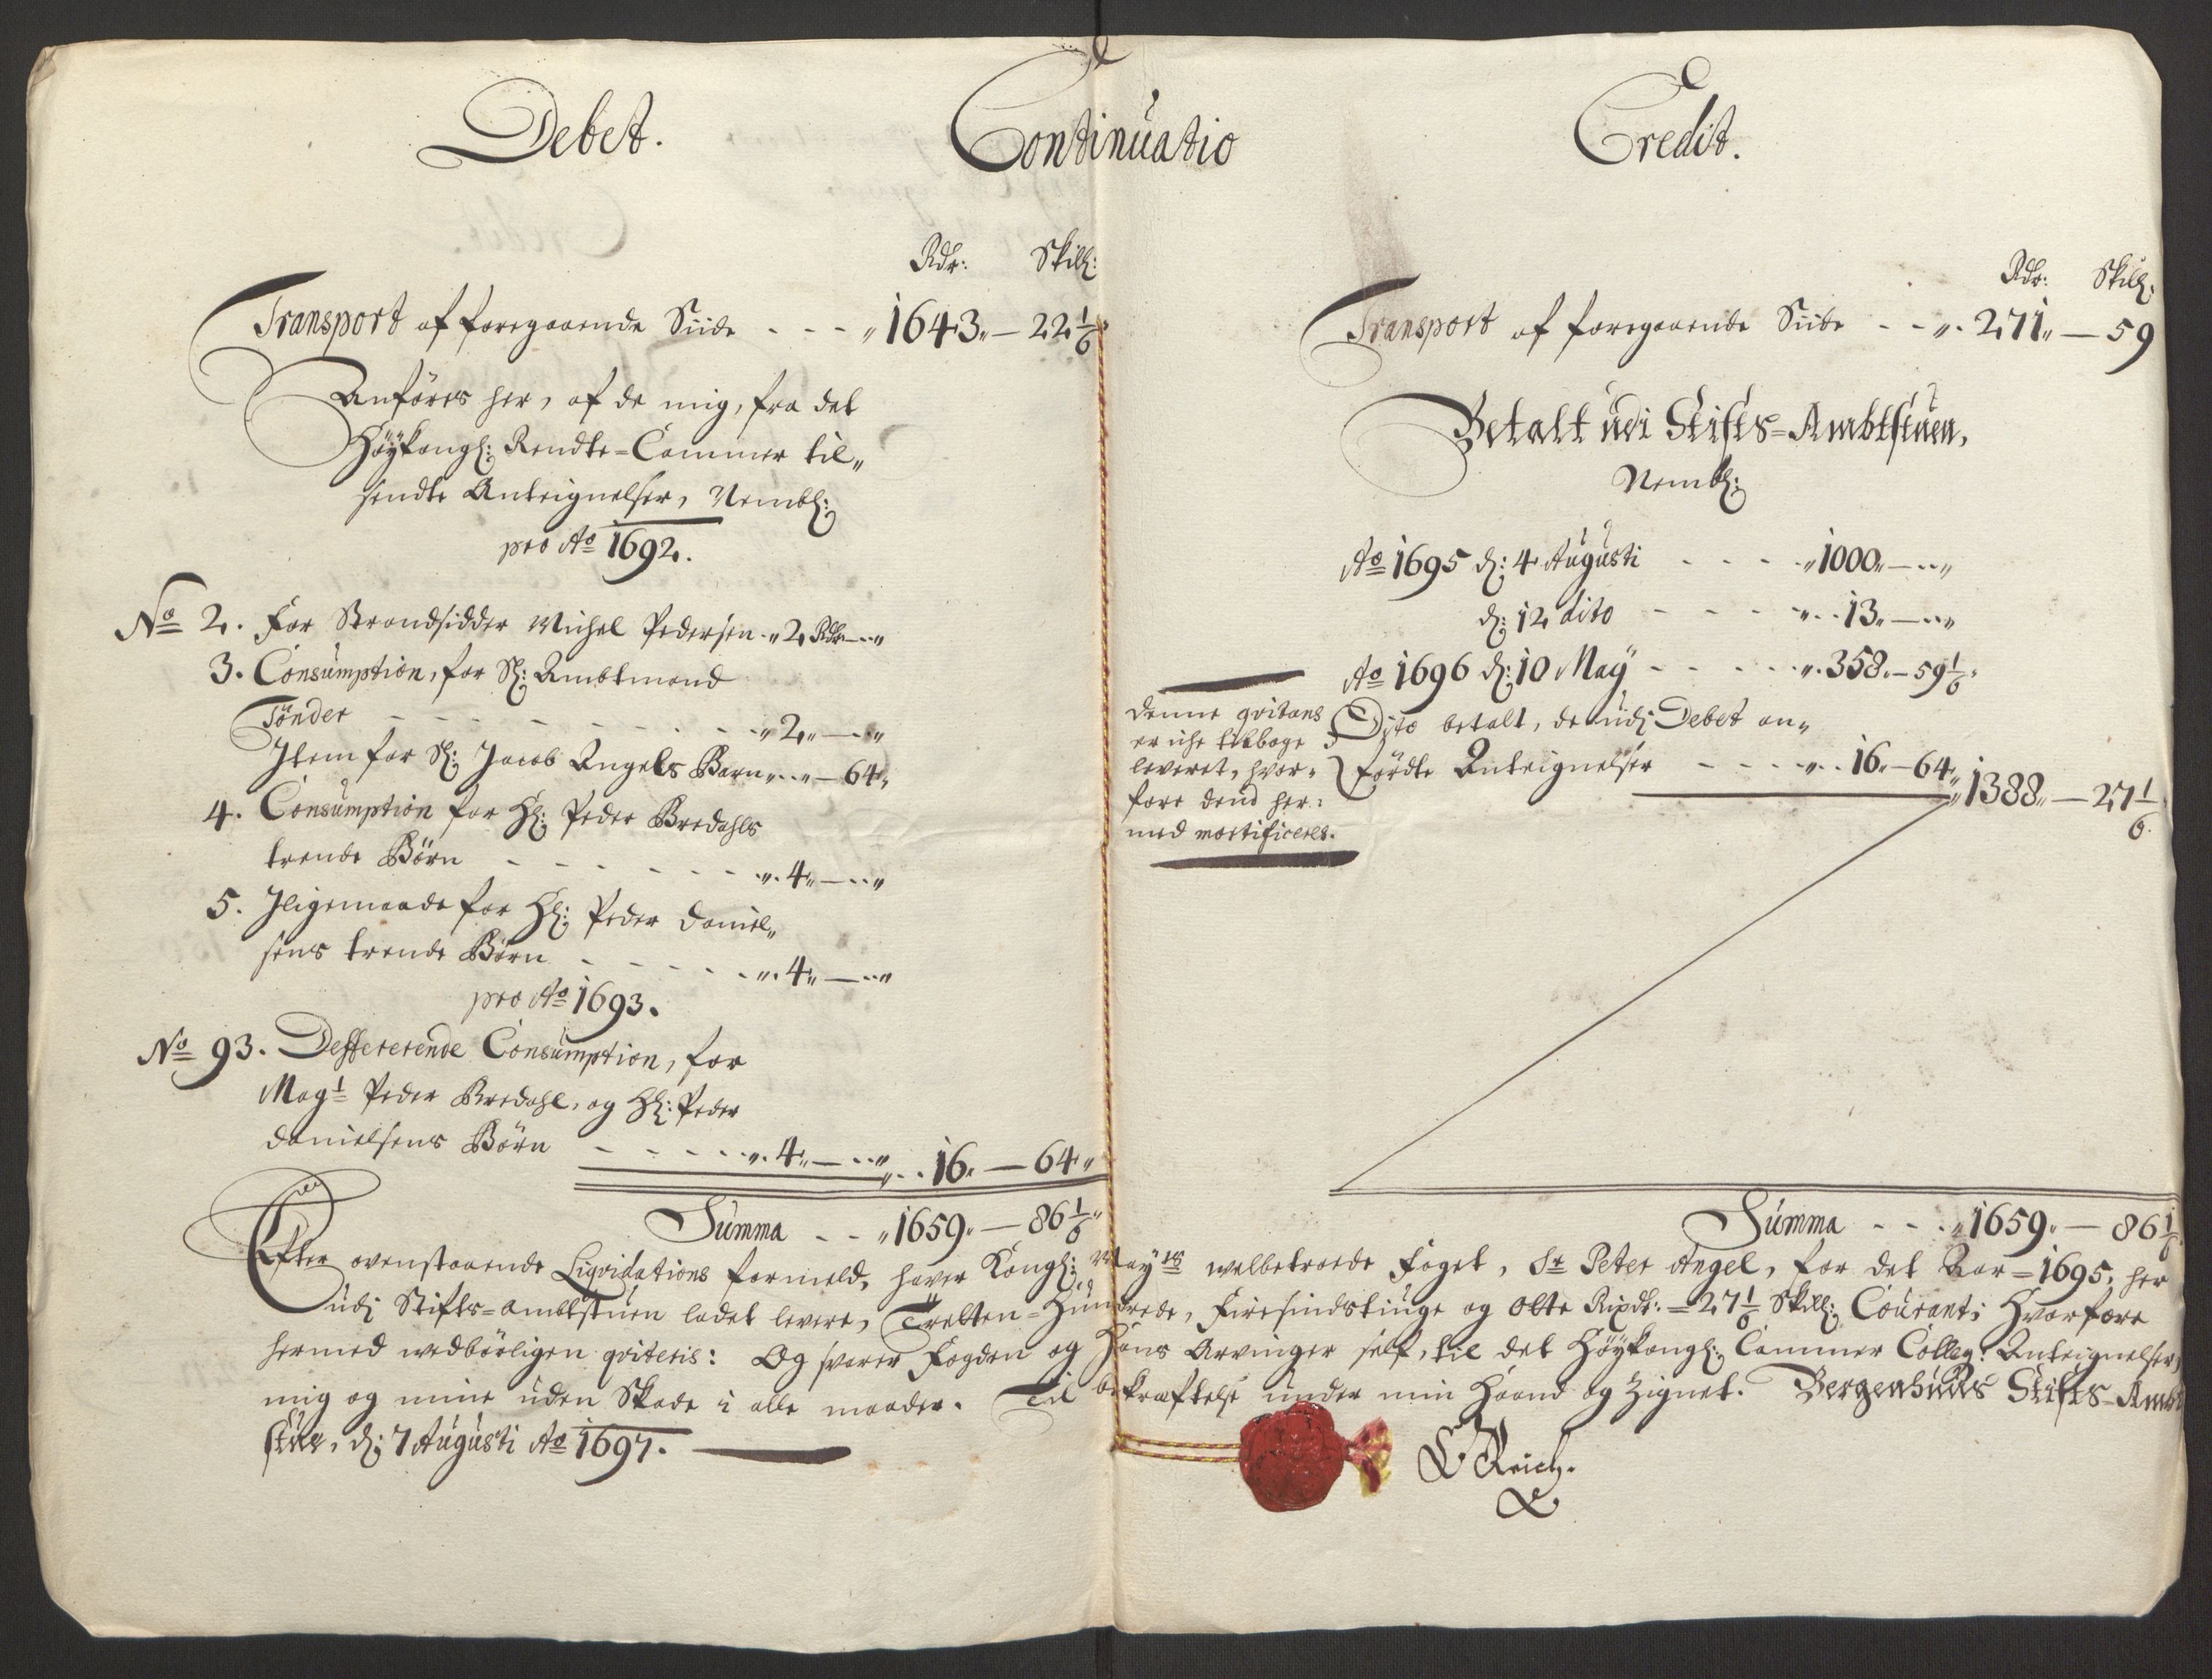 Debet.
Continuatio
Credit.
Rdr: Skill:
Transport af foregaaende Siide - - - „ 1643„ — 22 1/6
Anföres her, af de mig, fra det
Höÿkongl: Rendte=Cammer til„
sendte Anteignelser, Nembl:
pro Ao 1692.
No 2. For Strandsidder Michel Pedersen „ 2 Rdr — „
3. Consumption, for Sl: Ambtmand
Tönder - - - - - „ 2„ — „
Item for Sl: Jacob Angels Barn „ — 64„
4. Consumption for Hl: Peder Bredahls
trende Börn - - - - - „ 4„ — „
5. Iligemaade for Hl: Peder Daniel„
sens trende Börn - - - - - „ 4„ — „
pro Ao 1693.
No 93. Deffererende Consumption, for
Magr Peder Bredahl, og Hl: Peder
Danielsens Börn - - - - „ 4„ — „ „ 16„ — 64„
Summa - - „ 1659„ — 86 1/6„
Rdr: Skill:
Transport af foregaaende Siide - - „ 271„ — 59
Betalt udi Stifts=Ambtstuen,
Nembl:
Ao 1695 d: 4 Augusti - - - - „ 1000„ — „
d: 12 dito - - - - „ 13„ — „
Ao 1696 d: 10 Maÿ - - - - „ 358„ — 59 1/6„
Denne qvitans
er iche tilbage
leveret, hvor„
fore dend her:
med mortificeres.
Dito betalt, de udj Debet an„
fördte Anteignelser - - - - „ 16„ — 64„ „ 1388„ — 27 1/6.
Summa - - - „ 1659„ — 86 1/6
Efter ovenstaaende Liqvidations formeld, haver Kongl: Mayts welbetroede Foget, Sr Peter Angel, for det Aar = 1695, her
udj Stifts=Ambtstuen ladet levere, Tretten=Hundrede, Firesindstiuge og Otte Rixdr: = 27 1/6 Skill: Courant; Hvorfore
hermed wedbörligen qviteris: Og svarer Fogden og Hans Arvinger self, til det Höÿkongl: Cammer Colleg: Anteignelser,
mig og mine uden Skade i alle maader. Til bekræftelse under min Haand og Zignet. Bergenhuus Stifts=Ambt
stue, d: 7 Augusti Ao 1697.
Reich.